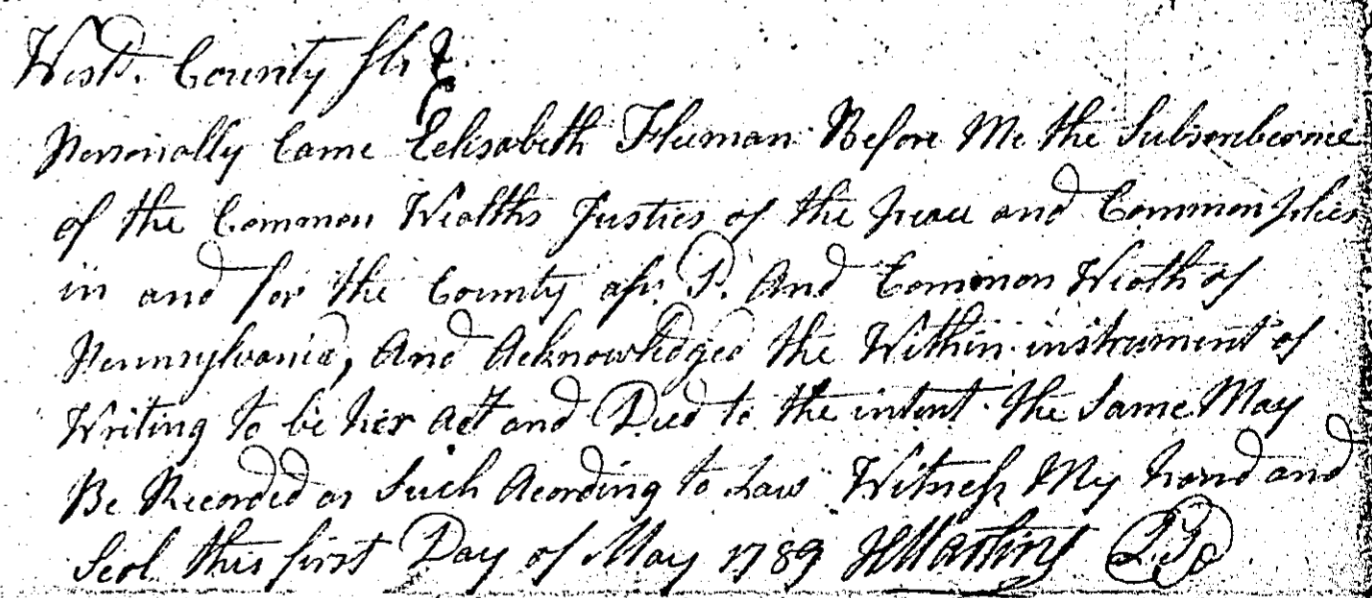 Westd. County Ss
Personally Came Eelisabeth Fleeman Before Me the Subscriber one
of the Common Wealths Justies of the peace and Common pleas
in and for the County afs. d. And Common Wealth of
Pennsylvania, And Acknowledged the Within instrument of
Writing to be her act and Deed to the intent the Same May
Be Recorded as Such Acording to Law Witness My hand and
Seal this first Day of May 1789 H Martin